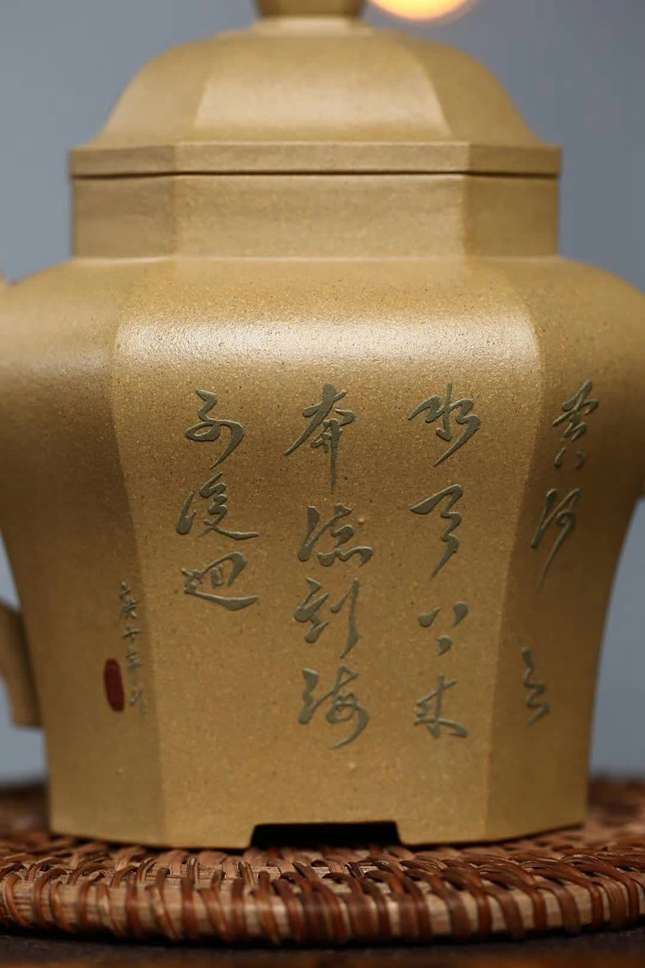 黄河之
水天上来
奔流到海
不復迴
庚子年